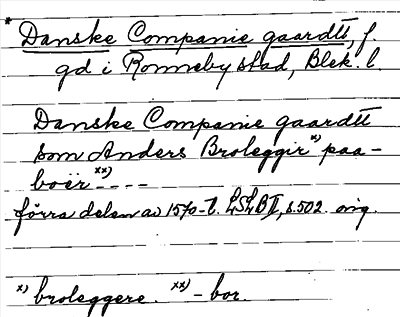 * Danske Companie gaardtt, f.
gd i Ronneby stad, Blek. l.
Danske Companie gaardtt
som Anders Broleggir x) paa-
boer xx) ----
förra delen av 1570-t. LSLB II, s. 502 orig.
x) broleggere. xx) -bor.